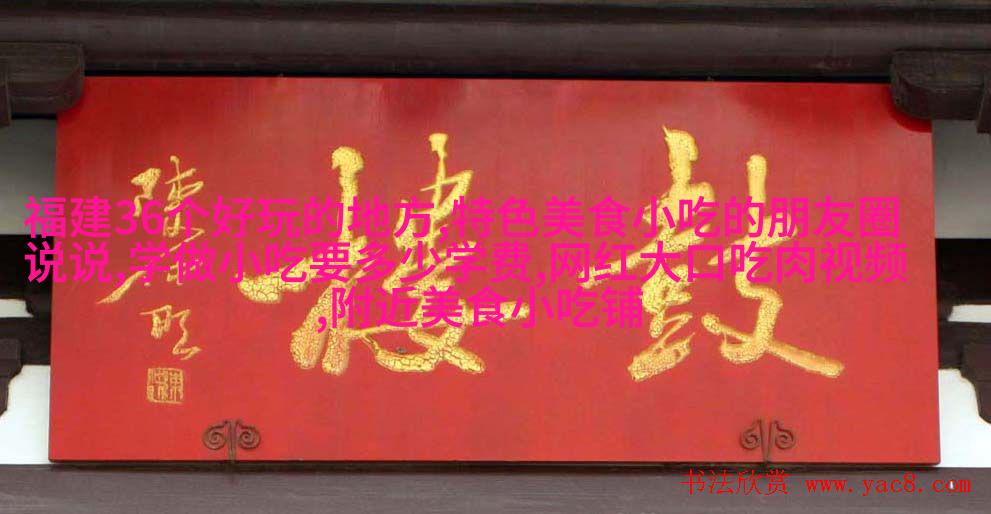 鼓楼
福建36个好玩的地方,特色美食小吃的朋友圈
说说,学做小吃要多少学费,网红大口吃肉视频
,附近美食小吃铺
书法欣赏 www.yac8.com